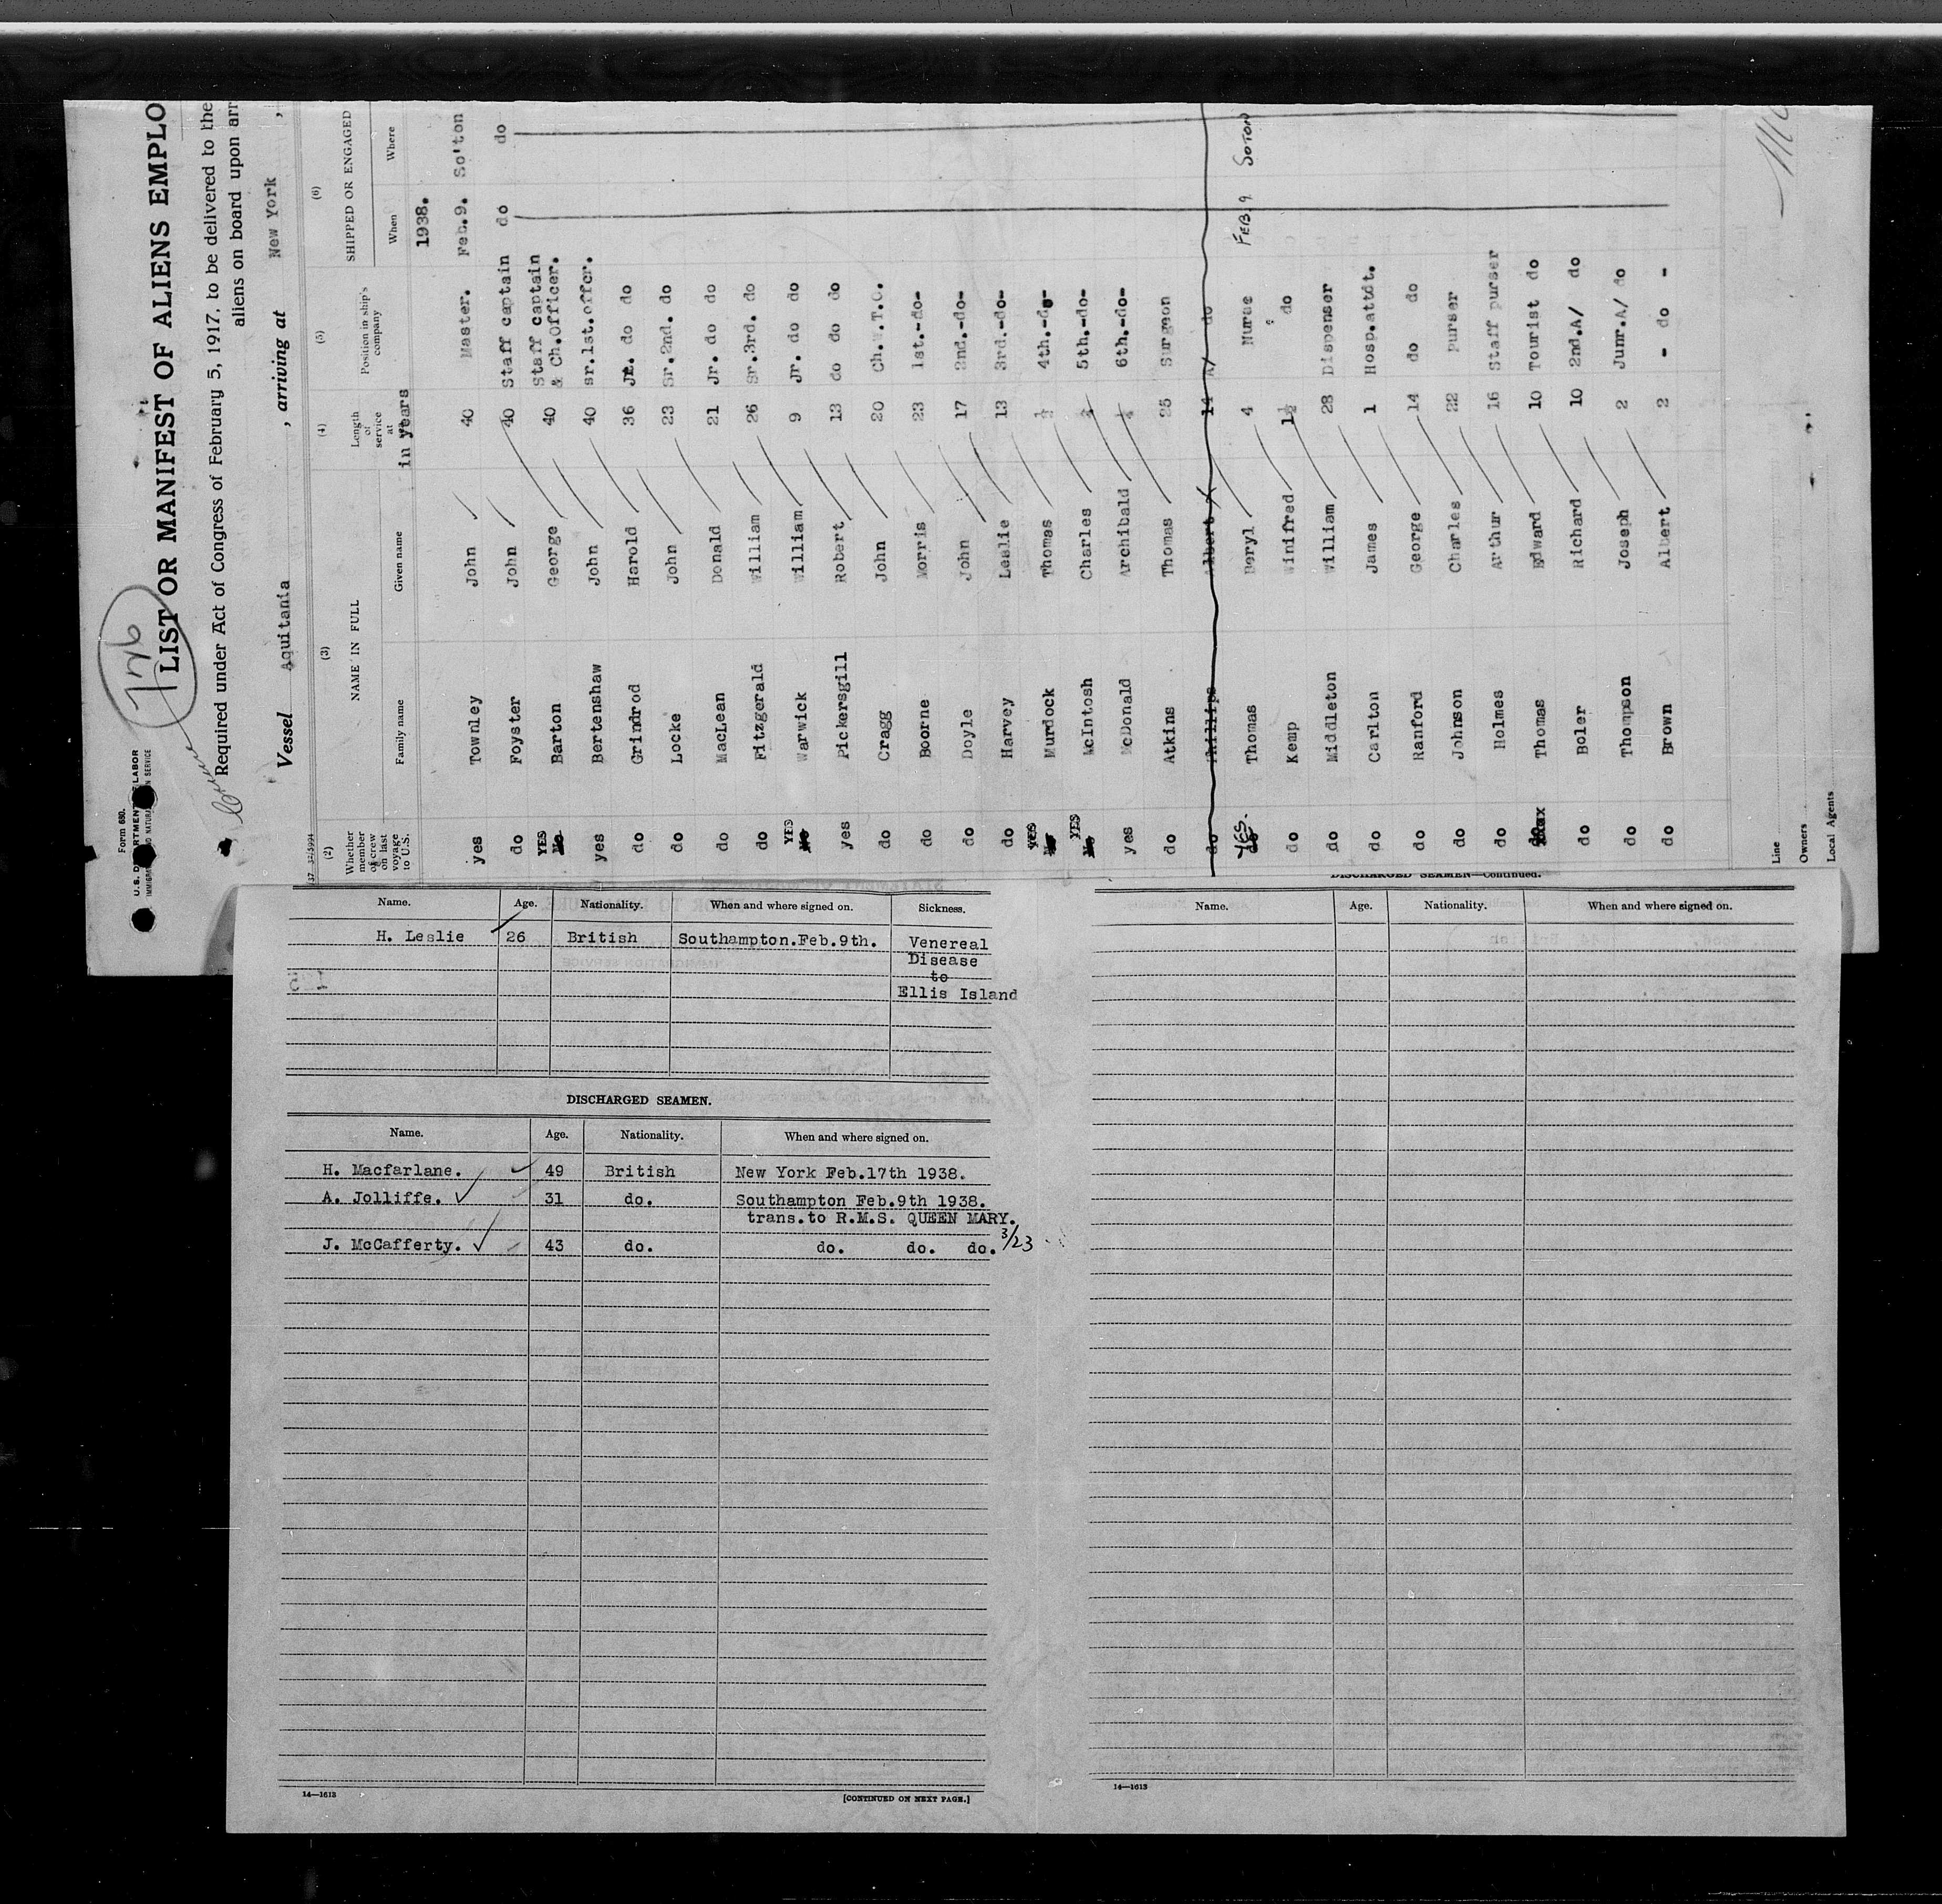 Form 680.
U.S. DEPARTMENT OF LABOR
IMMIGRATION AND NATURALIZATION SERVICE
LIST OR MANIFEST OF ALIENS EMPLO
Required under Act of Congress of February 5, 1917, to be delivered to the
aliens on board upon arr
Vessel Aquitania , arriving at New York ,
(2) (3) (4) (5) (6)
Whether member of crew on last voyage to U.S. NAME IN FULL Length of service at in years Position in ship's company SHIPPED OR ENGAGED
Family name Given name When Where
1938.
yes Townley John 40 Master. Feb.9. So'ton
do Foyster John 40 Staff captain do do
YES No Barton George 40 Staff captain & Ch.Officer.
yes Bertenshaw John 40 sr.1st.offcr.
do Grindrod Harold 36 Jr. do do
do Locke John 23 Sr.2nd. do
do MacLean Donald 21 Jr. do do
do Fitzgerald William 26 Sr.3rd. do
YES No Warwick William 9 Jr. do do
yes Pickersgill Robert 13 do do do
do Cragg John 20 Ch.W.T.O.
do Boorne Morris 23 1st.-do-
do Doyle John 17 2nd.-do-
do Harvey Leslie 13 3rd.-do-
YES No Murdock Thomas ½ 4th.-do-
YES No McIntosh Charles 5th.-do-
yes McDonald Archibald 6th.-do-
do Atkins Thomas 25 Surgeon
do Phillips Albert X 14 A/ do
YES. do Thomas Beryl 4 Nurse FEB.9 SOTON
do Kemp Winifred 1½ do
do Middleton William 28 Dispenser
do Carlton James 1 Hosp.attdt.
do Ranford George 14 do do
do Johnson Charles 22 Purser
do Holmes Arthur 16 Staff purser
do Thomas Edward 10 Tourist do
do Boler Richard 10 2nd.A/ do
do Thompson Joseph 2 Junr.A/ do
do Brown Albert 2 - do -
Line
Owners
Local Agents
Name. Age. Nationality. When and where signed on. Sickness.
H. Leslie 26 British Southampton.Feb.9th. Venereal
Disease
to
Ellis Island
DISCHARGED SEAMEN.
Name. Age. Nationality. When and where signed on.
H. Macfarlane. 49 British New York Feb.17th 1938.
A. Jolliffe. 31 do. Southampton Feb.9th 1938.
trans.to R.M.S. QUEEN MARY.
J. McCafferty. 43 do. do. do. do. 3/23
14—1613
[CONTINUED ON NEXT PAGE.]
DISCHARGED SEAMEN—Continued.
Name. Age. Nationality. When and where signed on.
14—1613